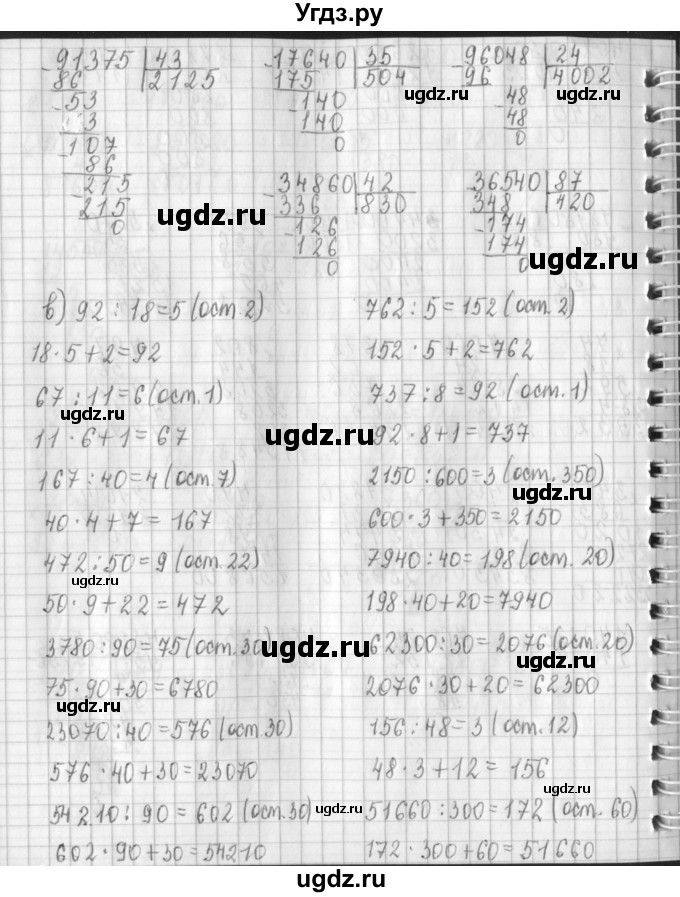 Угдз.ру
91375 | 43
86 | 2125
53
3
107
86
215
215
0
17640 | 35
175 | 504
140
140
0
96048 | 24
96 | 4002
48
48
0
34860 | 42
336 | 830
126
126
0
36540 | 87
348 | 420
174
174
0
ugdz.ru
ugdz.ru
ugdz.ru
ugdz.ru
ugdz.ru
в) 92 : 18 = 5 (ост. 2)
18 · 5 + 2 = 92
67 : 11 = 6 (ост. 1)
ugdz.ru
11 · 6 + 1 = 67
167 : 40 = 4 (ост. 7)
40 · 4 + 7 = 167
472 : 50 = 9 (ост. 22)
ugdz.ru
50 · 9 + 22 = 472
3780 : 90 = 75 (ост. 30)
75 · 90 + 30 = 6780
ugdz.ru
23070 : 40 = 576 (ост. 30)
576 · 40 + 30 = 23070
54210 : 90 = 602 (ост. 30)
602 · 90 + 30 = 54210
762 : 5 = 152 (ост. 2)
152 · 5 + 2 = 762
737 : 8 = 92 (ост. 1)
ugdz.ru
92 · 8 + 1 = 737
2150 : 600 = 3 (ост. 350)
ugdz.ru
600 · 3 + 350 = 2150
7940 : 40 = 198 (ост. 20)
198 · 40 + 20 = 7940
ugdz.ru
62300 : 30 = 2076 (ост. 20)
ugdz.ru
2076 · 30 + 20 = 62300
156 : 48 = 3 (ост. 12)
ugdz.ru
48 · 3 + 12 = 156
ugdz.ru
51660 : 300 = 172 (ост. 60)
ugdz.ru
172 · 300 + 60 = 51660
ugdz.ru